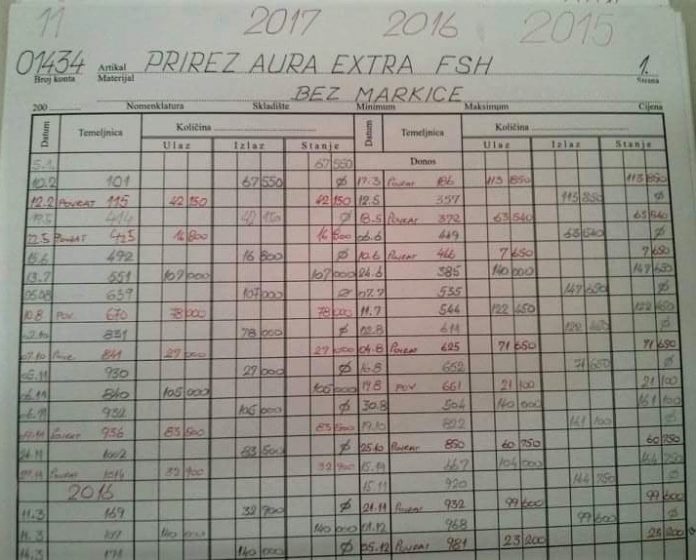 11 2017 2016 2015
01434 Artikal PRIREZ AURA EXTRA FSH 1.
Broj konta Materijal Strana
BEZ MARKICE
200 Nomenklatura Skladište Minimum Maksimum Cijena
Datum Temeljnica Količina Datum Temeljnica Količina
Ulaz Izlaz Stanje Ulaz Izlaz Stanje
5.1. 67550 Donos
10.2 101 67550 Ø 17.3 Povrat 186 113 850 113 850
12.2 POVRAT 115 42 150 42 150 12.5 357 113 850 Ø
414 42 150 Ø 18.5 Povrat 372 63 540 63 540
22.5 POVRAT 425 16 800 16 800 06.6 449 63 540 Ø
15.6 492 16 800 Ø 10.6 Povrat 466 7 650 7 650
13.7 551 107 000 107 000 24.6 385 140 000 147 650
05.08 639 107 000 Ø 07.7 535 147 650 Ø
10.8 POV. 670 78 000 78 000 11.7 544 122 450 122 450
831 78 000 Ø 02.8 614 122 450 Ø
07.10 841 27 000 27 000 04.8 Povrat 625 71 650 71 650
05.11 930 27 000 Ø 16.8 652 71 650 Ø
06.11 840 105 000 105 000 17.8 POV 661 21 100 21 100
06.11 105 000 Ø 30.8 504 140 000 161 100
Povrat 936 83 500 83 500 19.10 822 161 100 Ø
24.11 1002 83 500 Ø 25.10 Povrat 850 60 750 60 750
Povrat 1014 32 700 32 700 15.11 667 104 000
2016 15.11 920 Ø
11.3 169 32 700 Ø 21.11 Povrat 932 99 600 99 600
140 000 01.12 968 99 600 Ø
140 000 Ø 05.12 Povrat 981 23 200 23 200